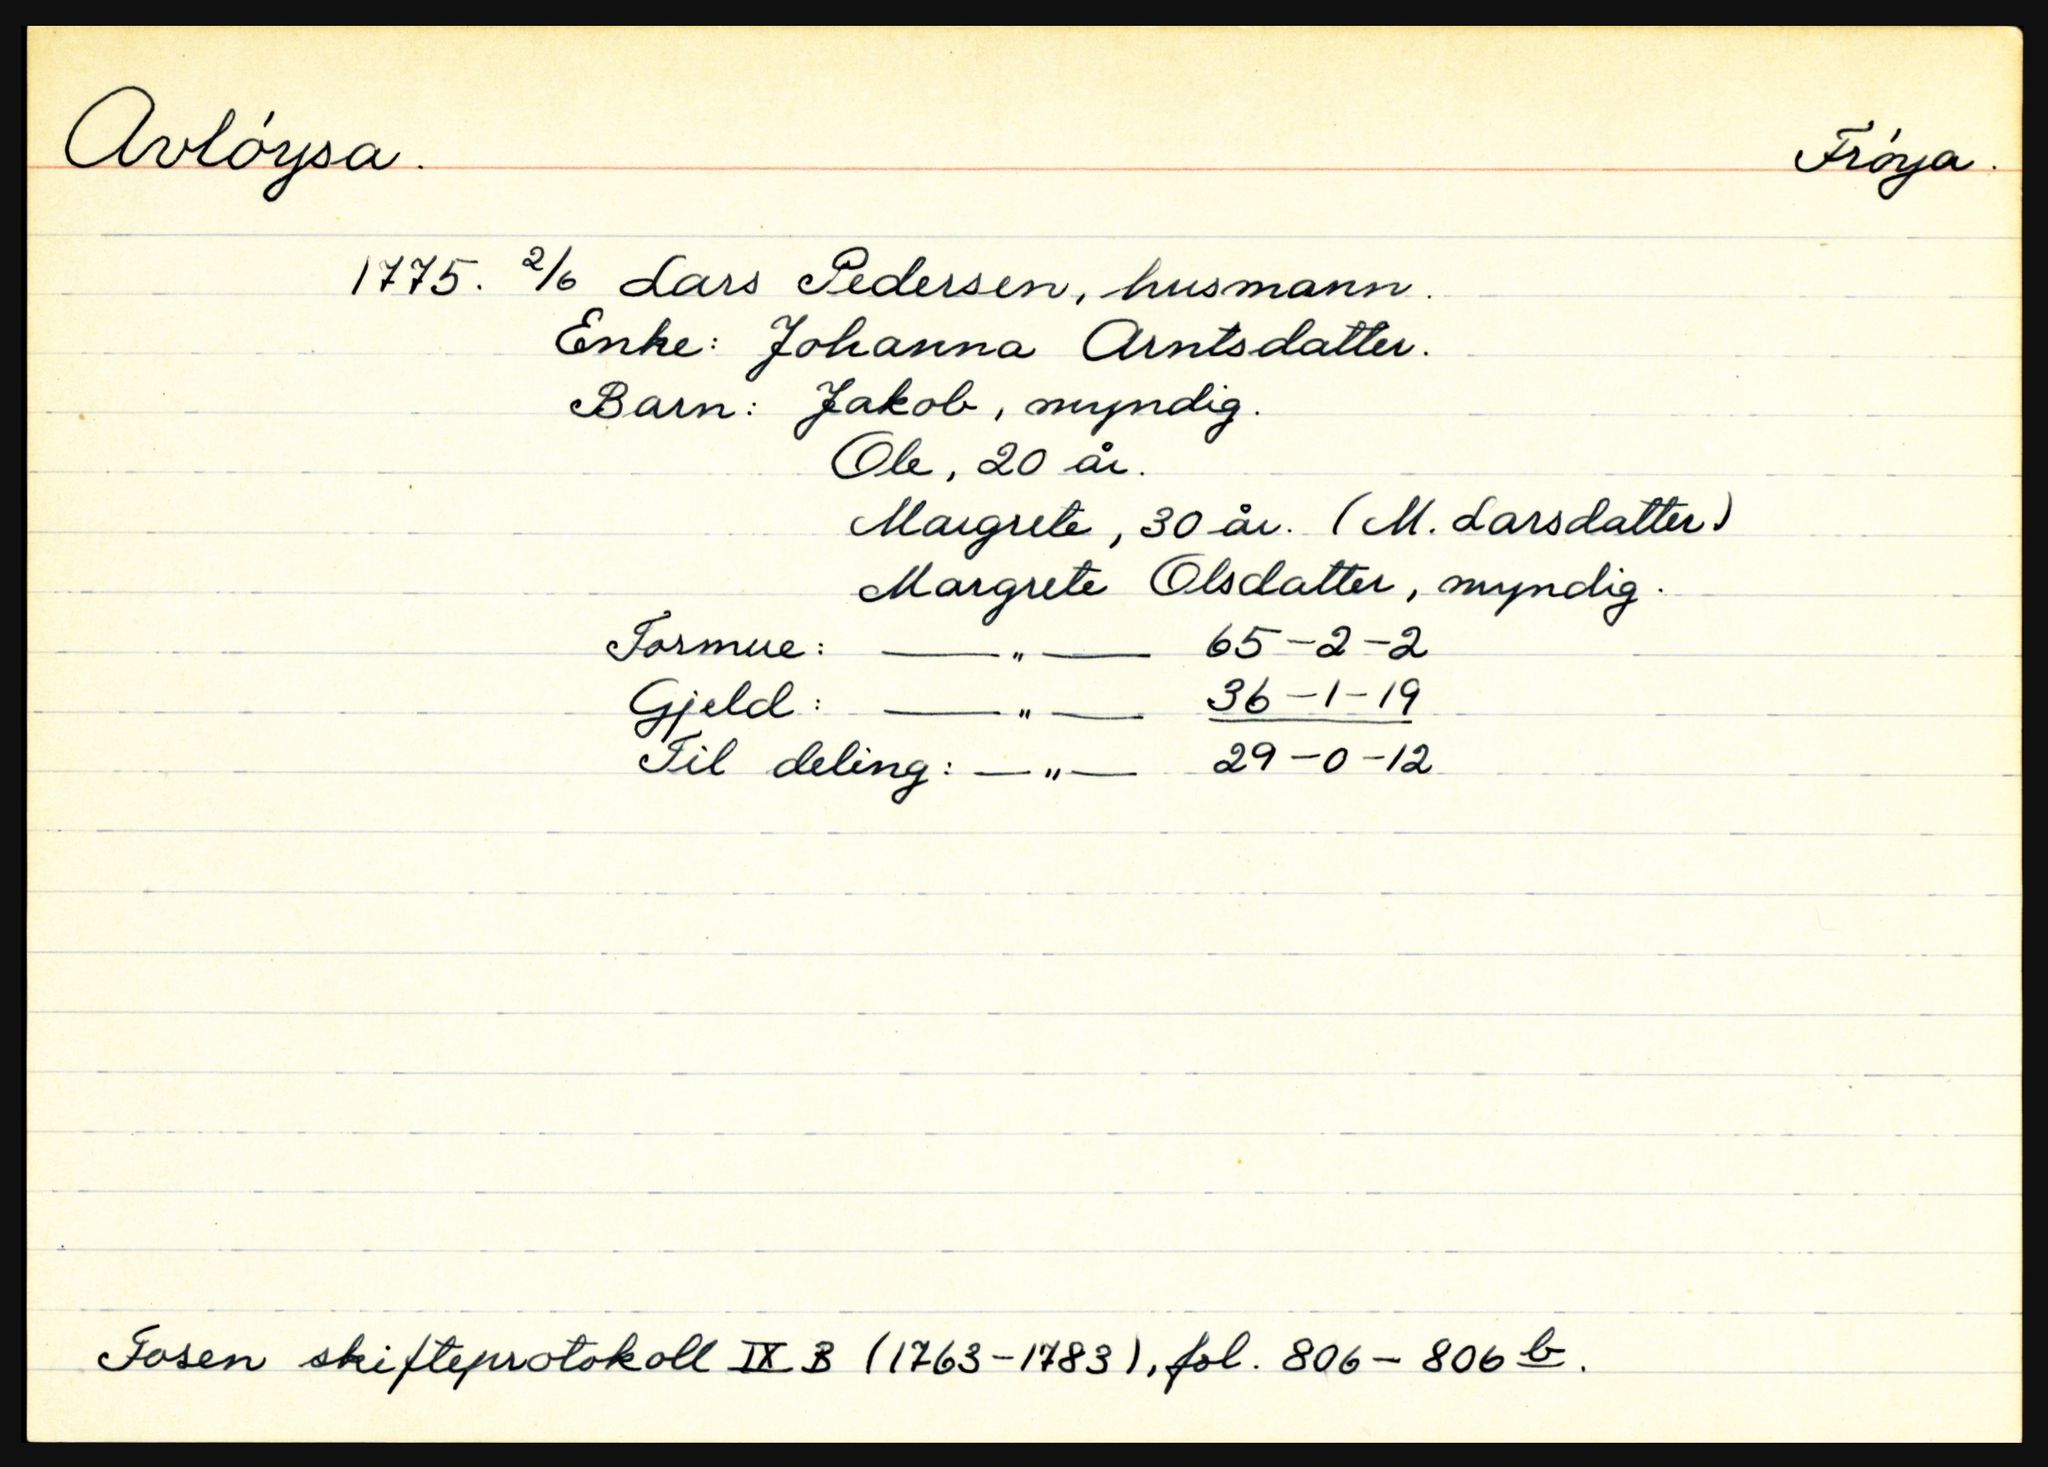 Avlóysa. Fróya.
1775. 2/6 Lars Pedersen, husmann.
Enke: Johanna Arntsdatter.
Barn: Jakob, myndig.
Ole, 20 år.
Margrete, 30 år. (M. Larsdatter)
Margrete Olsdatter, myndig.
Formue: —„— 65-2-2
Gjeld: —„— 36-1-19
Til deling: —„— 29-0-12
Fosen skifteprotokoll IX B (1763-1783), fol. 806-806 b.